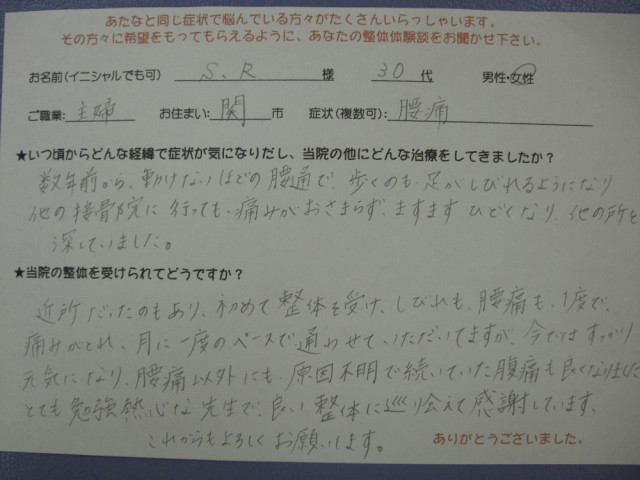 あなたと同じ症状で悩んでいる方々がたくさんいらっしゃいます。
その方々に希望をもってもらえるように、あなたの整体体験談をお聞かせ下さい。
お名前(イニシャルでも可) S、R 様 30 代 男性・女性
ご職業: 主婦 お住まい: 関 市 症状(複数可): 腰痛
★いつ頃からどんな経緯で症状が気になりだし、当院の他にどんな治療をしてきましたか?
数年前から、動けないほどの腰通で、歩くのも足がしびれるようになり
他の接骨院に行っても、痛みがおさまらず、ますますひどくなり、他の所を
深していました。
★当院の整体を受けられてどうですか?
近所だったのもあり、初めて整体を受け、しびれも、腰痛も、1度で、
痛みがとれ、月に一度のペースで通わせていただいてますが、今ではすっかり
元気になり、腰痛以外にも、原因不明で続いていた腹痛も良くなりました
とても勉強熱心な先生で、良い整体に巡り会えて感謝しています、
これからもよろしくお願いします。
ありがとうございました。